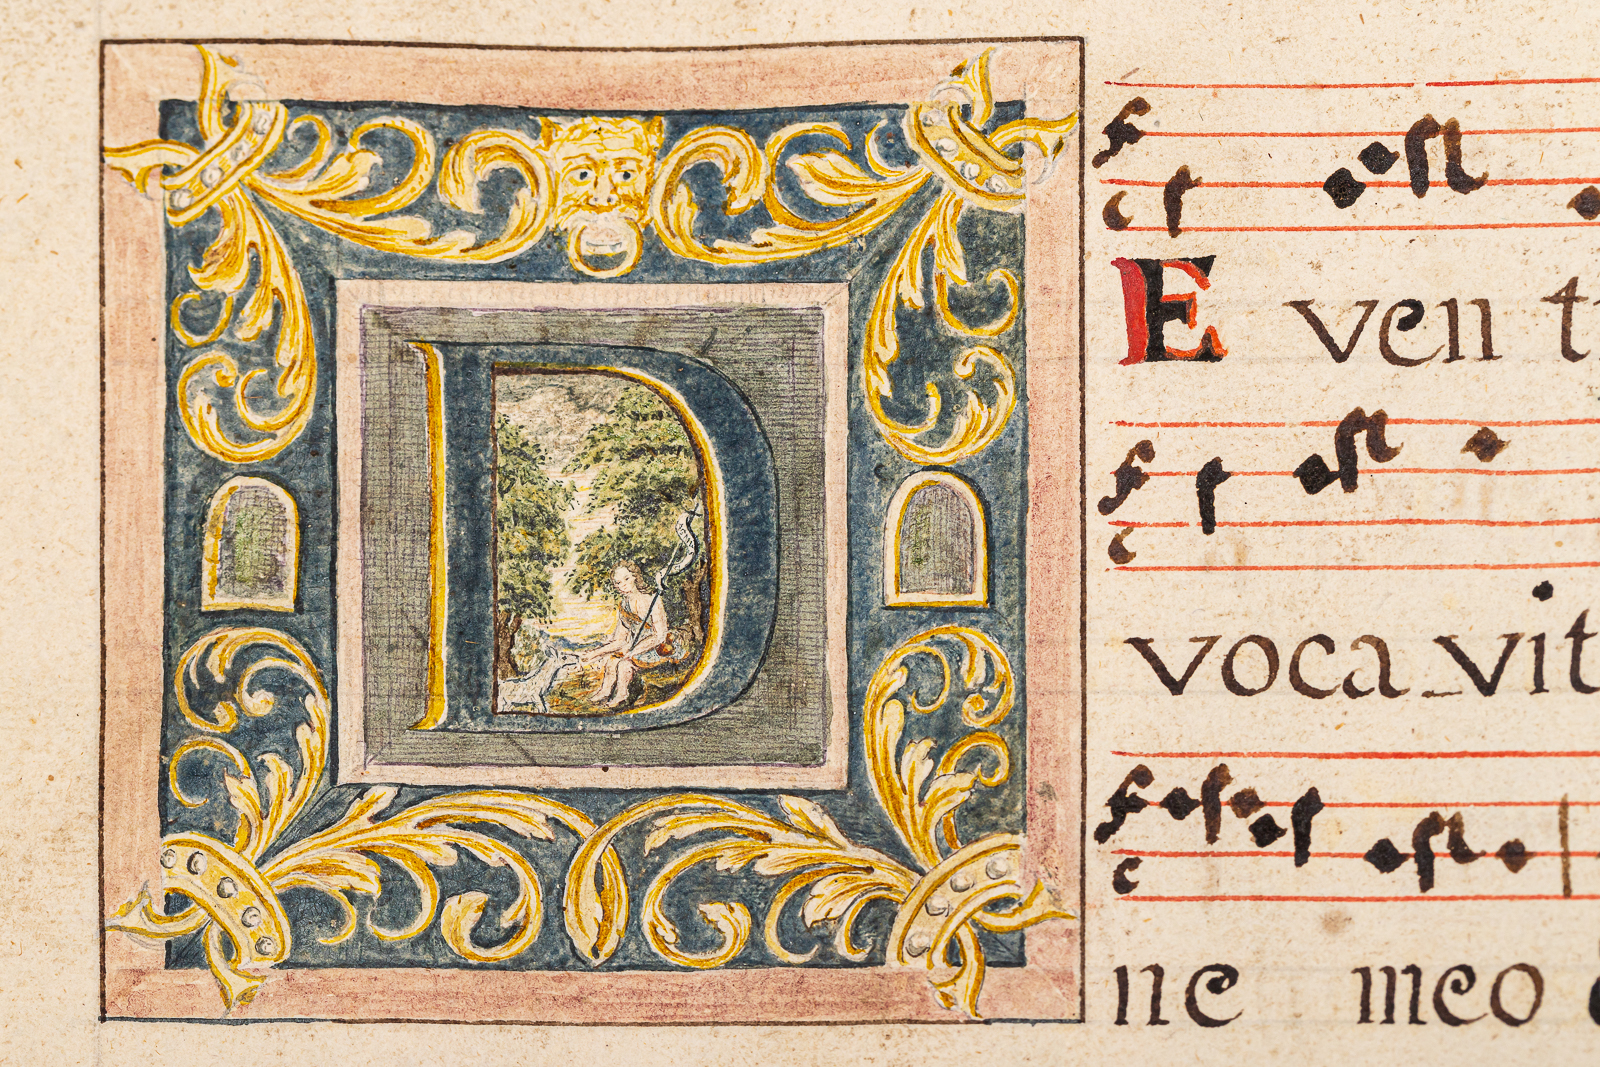 DE ven t
voca vit
ne meo